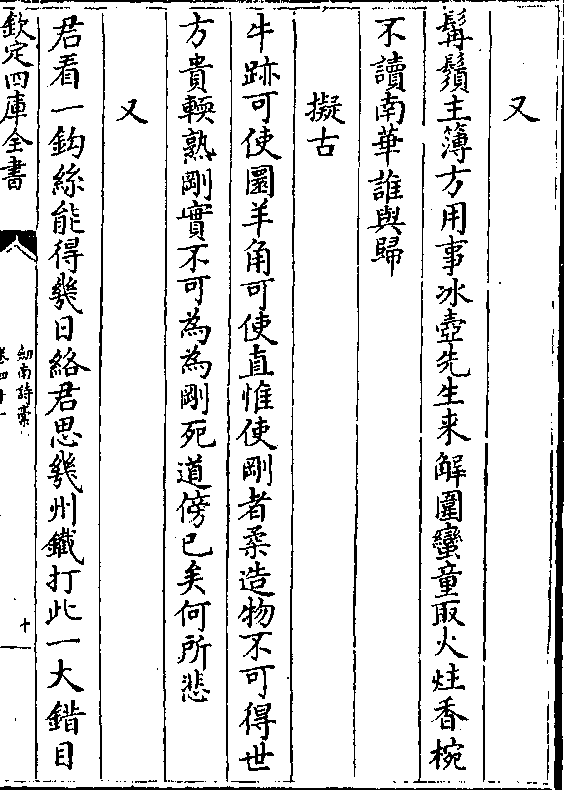 又
髯鬚主簿方用事冰壺先生来解圍蠻童取火炷香椀
不讀南華誰與歸
擬古
牛跡可使圜羊角可使直惟使剛者柔造物不可得世
方貴輭熟剛實不可為為剛死道傍已矣何所悲
又
君看一鈎絲能得幾日絡君思幾州鐵打此一大錯目
欽定四庫全書
劒南詩藁
卷四十一
十